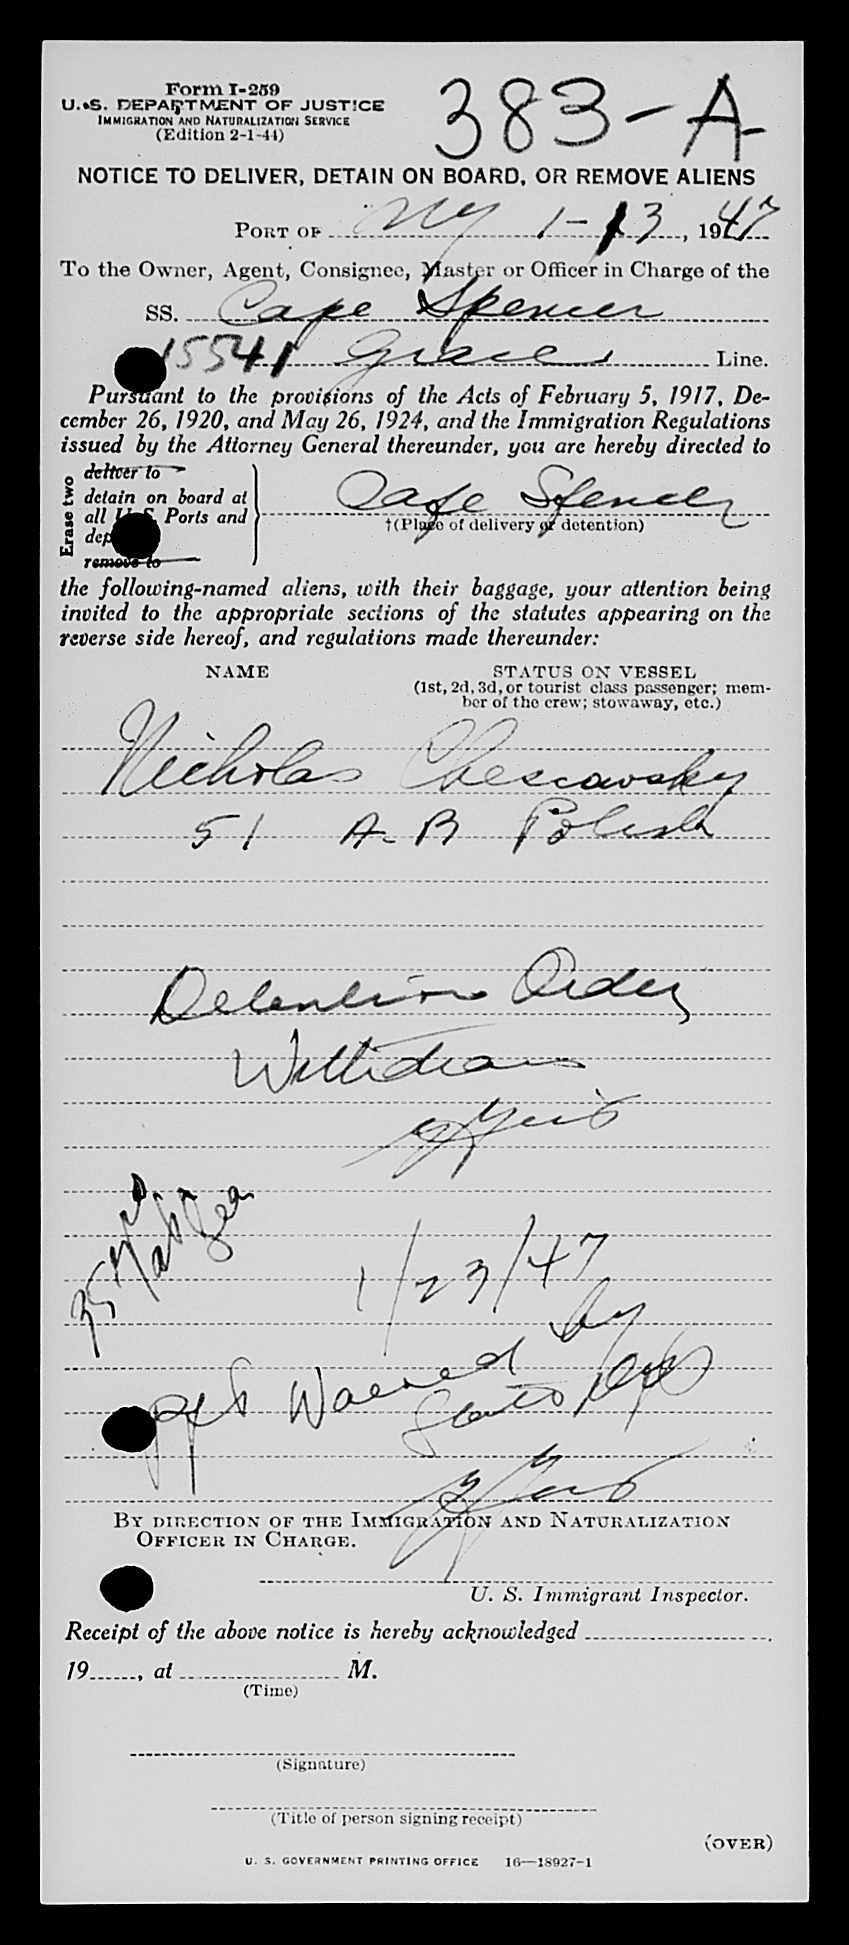 Form I-259
U. S. DEPARTMENT OF JUSTICE
IMMIGRATION AND NATURALIZATION SERVICE
(Edition 2-1-44)
383-A
NOTICE TO DELIVER, DETAIN ON BOARD, OR REMOVE ALIENS
PORT OF NY 1-13, 1947
To the Owner, Agent, Consignee, Master or Officer in Charge of the
SS. Cape Spencer
15541 Grace Line.
Pursuant to the provisions of the Acts of February 5, 1917, De-
cember 26, 1920, and May 26, 1924, and the Immigration Regulations
issued by the Attorney General thereunder, you are hereby directed to
Erase two
deliver to
detain on board at
all U. S. Ports and
dep
remove to
Cape Spencer
†(Place of delivery or detention)
the following-named aliens, with their baggage, your attention being
invited to the appropriate sections of the statutes appearing on the
reverse side hereof, and regulations made thereunder:
NAME
STATUS ON VESSEL
(1st, 2d, 3d, or tourist class passenger; mem-
ber of the crew; stowaway, etc.)
Nicholas Chescawsky
51 A-B Polish
Detention Order
Withdrawn
1/23/47
ppt Waived by
State Dept
BY DIRECTION OF THE IMMIGRATION AND NATURALIZATION
OFFICER IN CHARGE.
U. S. Immigrant Inspector.
Receipt of the above notice is hereby acknowledged
19, at M.
(Time)
(Signature)
(Title of person signing receipt)
(OVER)
U. S. GOVERNMENT PRINTING OFFICE 16—18927-1